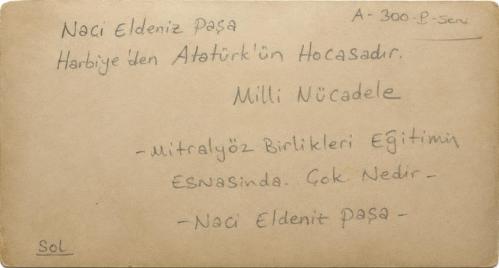 Naci Eldeniz Paşa
A-300-P-Seri
Harbiye'den Atatürk'ün Hocasadır.
Milli Nücadele
-Mitralyöz Birlikleri Eğitimin
Esnasinda. Çok Nedir-
-Naci Eldeniz Paşa-
Sol